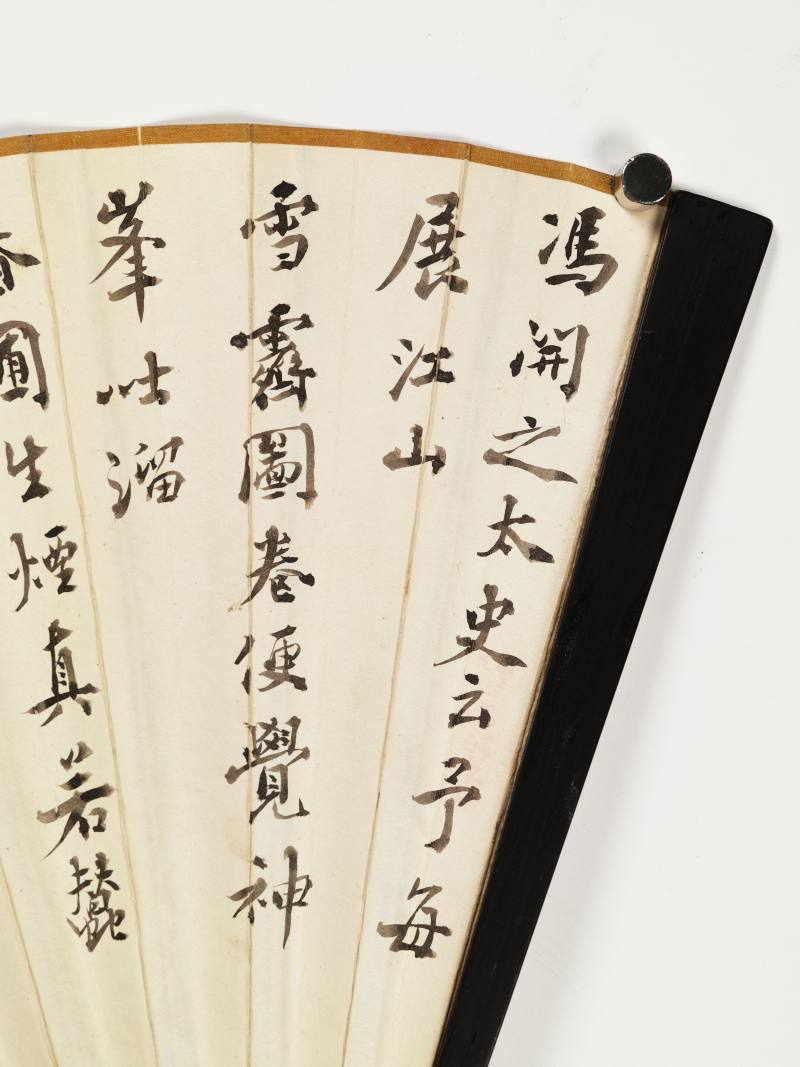 馮開之太史云予每
展江山
雪霽圖卷便覺神
峯吐溜
春圃生煙真若蠶